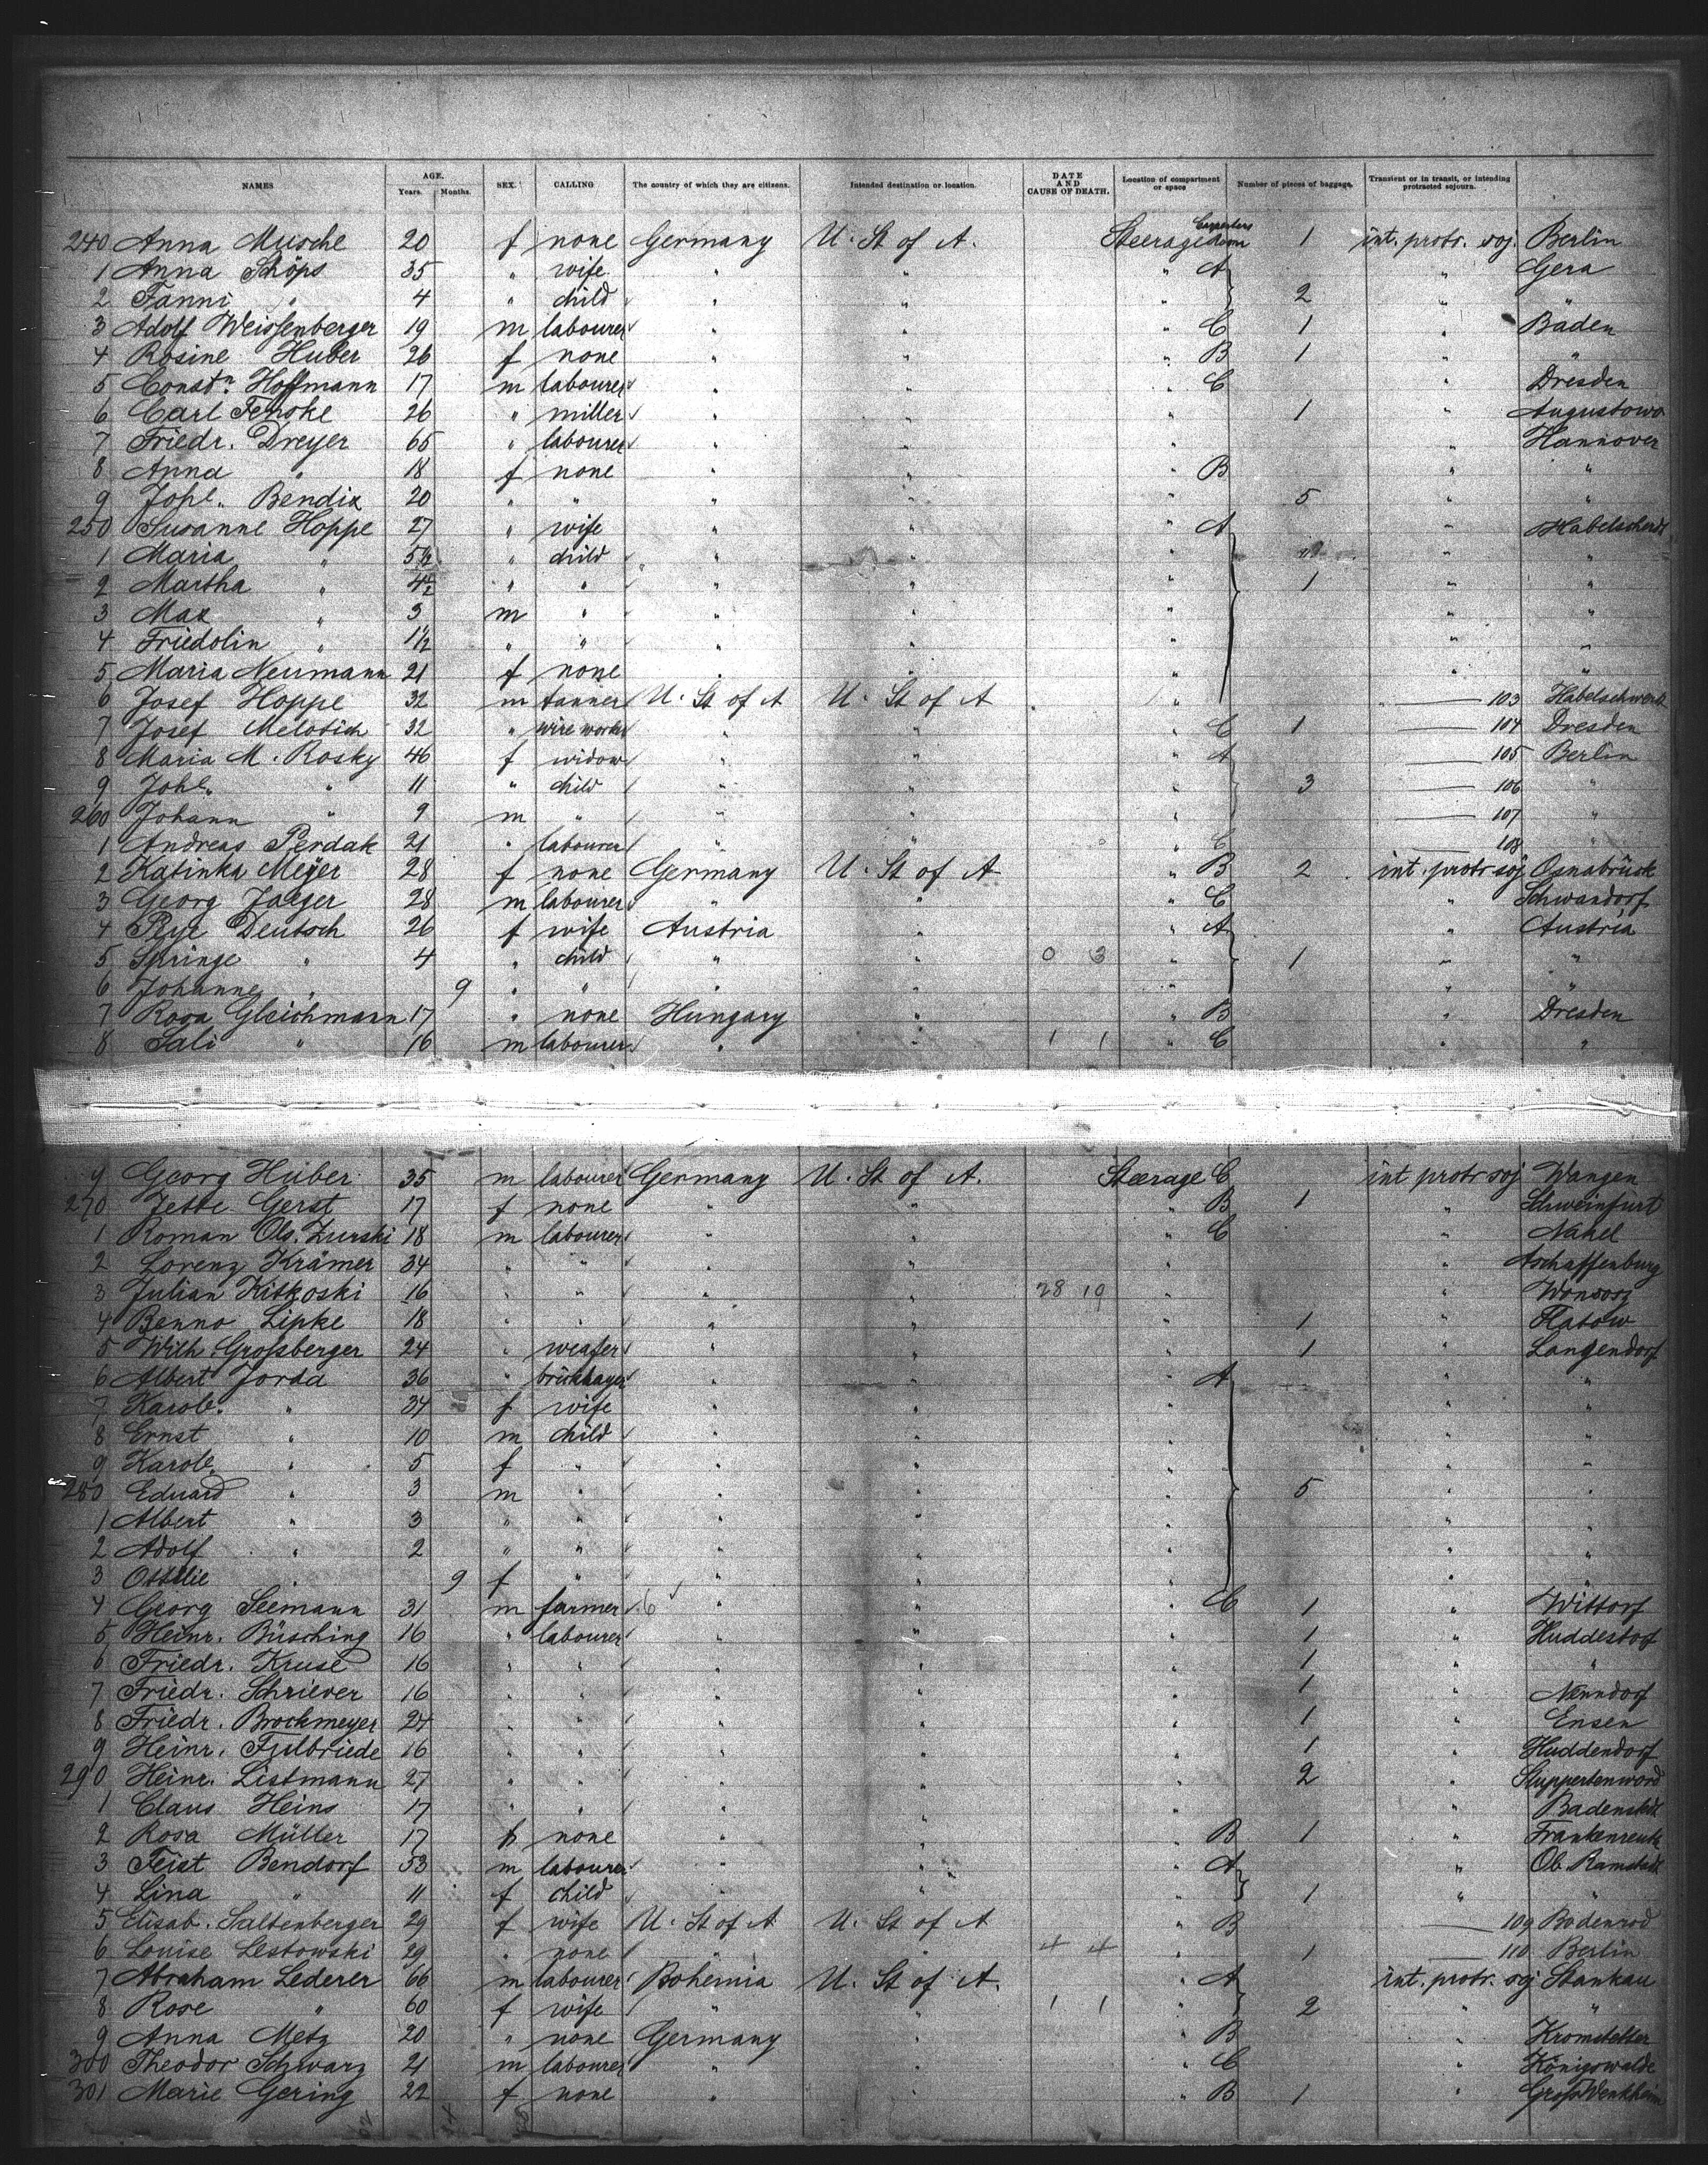 NAMES AGE. Years. Months. SEX. CALLING The country of which they are citizens. Intended destination or location. DATE AND CAUSE OF DEATH. Location of compartment or space Number of pieces of baggage. Transient or in transit, or intending protracted sojourn.
240 Anna Musche 20 f none Germany U. St of A. Steerage room 1 int. protr. soj. Berlin
1 Anna Schöps 35 " wife " " " A " Gera
2 Fanni " 4 " child " " " 2 " "
3 Adolf Weissenberger 19 m labourer " " " C 1 " Baden
4 Rosine Huber 26 f none " " " B 1 " "
5 Constn. Hoffmann 17 m labourer " " " C " Dresden
6 Carl Fenske 26 " miller " " " 1 " Augustowo
7 Friedr. Dreyer 65 " labourer " " " " Hannover
8 Anna " 18 f none " " " B " "
9 Johe. Bendix 20 " " " " " 5 " "
250 Susanne Hoppe 27 " wife " " " A " Habelschwerdt
1 Maria " 5½ " child " " " " "
2 Martha " 4½ " " " " " 1 " "
3 Max " 3 m " " " " " "
4 Friedolin " 1½ " " " " " " "
5 Maria Neumann 21 f none " " " " "
6 Josef Hoppe 32 m tanner U. St of A U. St of A " " 103 Habelschwerdt
7 Josef Melotich 32 " wire worker " " " C 1 104 Dresden
8 Maria M. Rosky 46 f widow " " " A 105 Berlin
9 Johe. " 11 " child " " " 3 106 "
260 Johann " 9 m " " " " 107 "
1 Andreas Perdak 21 " labourer " " " C 108 "
2 Katinka Meyer 28 f none Germany U. St of A " B 2 int. protr soj Osnabrück
3 Georg Jaeger 28 m labourer " " " C " Schwandorf
4 Deutsch 26 f wife Austria " " A " Austria
5 Springe " 4 " child " " 0 3 " 1 " "
6 Johanne " 9 " " " " " " "
7 Rosa Gleichmann 17 " none Hungary " " B " Dresden
8 Sali " 16 m labourer " " 1 1 " C " "
9 Georg Huber 35 m labourer Germany U. St of A. Steerage C int protr soj Wangen
270 Jette Gerst 17 f none " " " B 1 " Schweinfurt
1 Roman Ols.Zurski 18 m labourer " " " C " Nakel
2 Lorenz Krämer 34 " " " " " " Aschaffenburg
3 Julian Kitkoski 16 " " " " 28 19 " "
4 Benno Lipke 18 " " " " " 1 " Flatow
5 Wilh. Grossberger 24 " weafer " " " 1 " Langendorf
6 Albert Jorda 36 " " " " A " "
7 Karole. " 34 f wife " " " " "
8 Ernst " 10 m child " " " " "
9 Karole. " 5 f " " " " " "
280 Eduard " 3 m " " " " 5 " "
1 Albert " 3 " " " " " " "
2 Adolf " 2 " " " " " " "
3 Ottilie " 9 f " " " " " "
4 Georg Seemann 31 m farmer 6 " " " C 1 " Wittorf
5 Heinr. Büsching 16 " labourer " " " 1 " Huddestorf
6 Friedr. Kruse 16 " " " " " 1 " "
7 Friedr. Schriever 16 " " " " " 1 " Nenndorf
8 Friedr. Brockmeyer 24 " " " " " 1 " Ensen
9 Heinr. Fulbriede 16 " " " " " 1 " Huddendorf
290 Heinr. Listmann 27 " " " " " 2 "
1 Claus Heins 17 " " " " " " Badenstedt
2 Rosa Müller 17 f none " " " B 1 " Frankenreuth
3 Feist Bendorf 53 m labourer " " " A " Ob. Ramstadt
4 Lina " 11 f child " " " 1 " "
5 Elisab. Saltenberger 29 f wife U. St of A U. St of A " B 109 Bodenrod
6 Louise Lestowski 29 " none " " 4 4 " 1 110 Berlin
7 Abraham Lederer 66 m labourer Bohemia U. St of A. " A int. protr. soj Stankau
8 Rose " 60 f wife " " 1 1 " 2 " "
9 Anna Metz 20 " none Germany " " B " Kromstetter
300 Theodor Schwarz 21 m labourer " " " C " Königswalde
301 Marie Gering 22 f none " " " B 1 " Gross Wenkheim